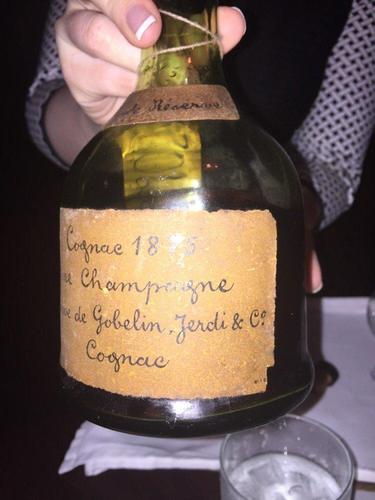 Réserve
Cognac 1875
Champagne
de Gobelin, Jerdi & Cº
Cognac